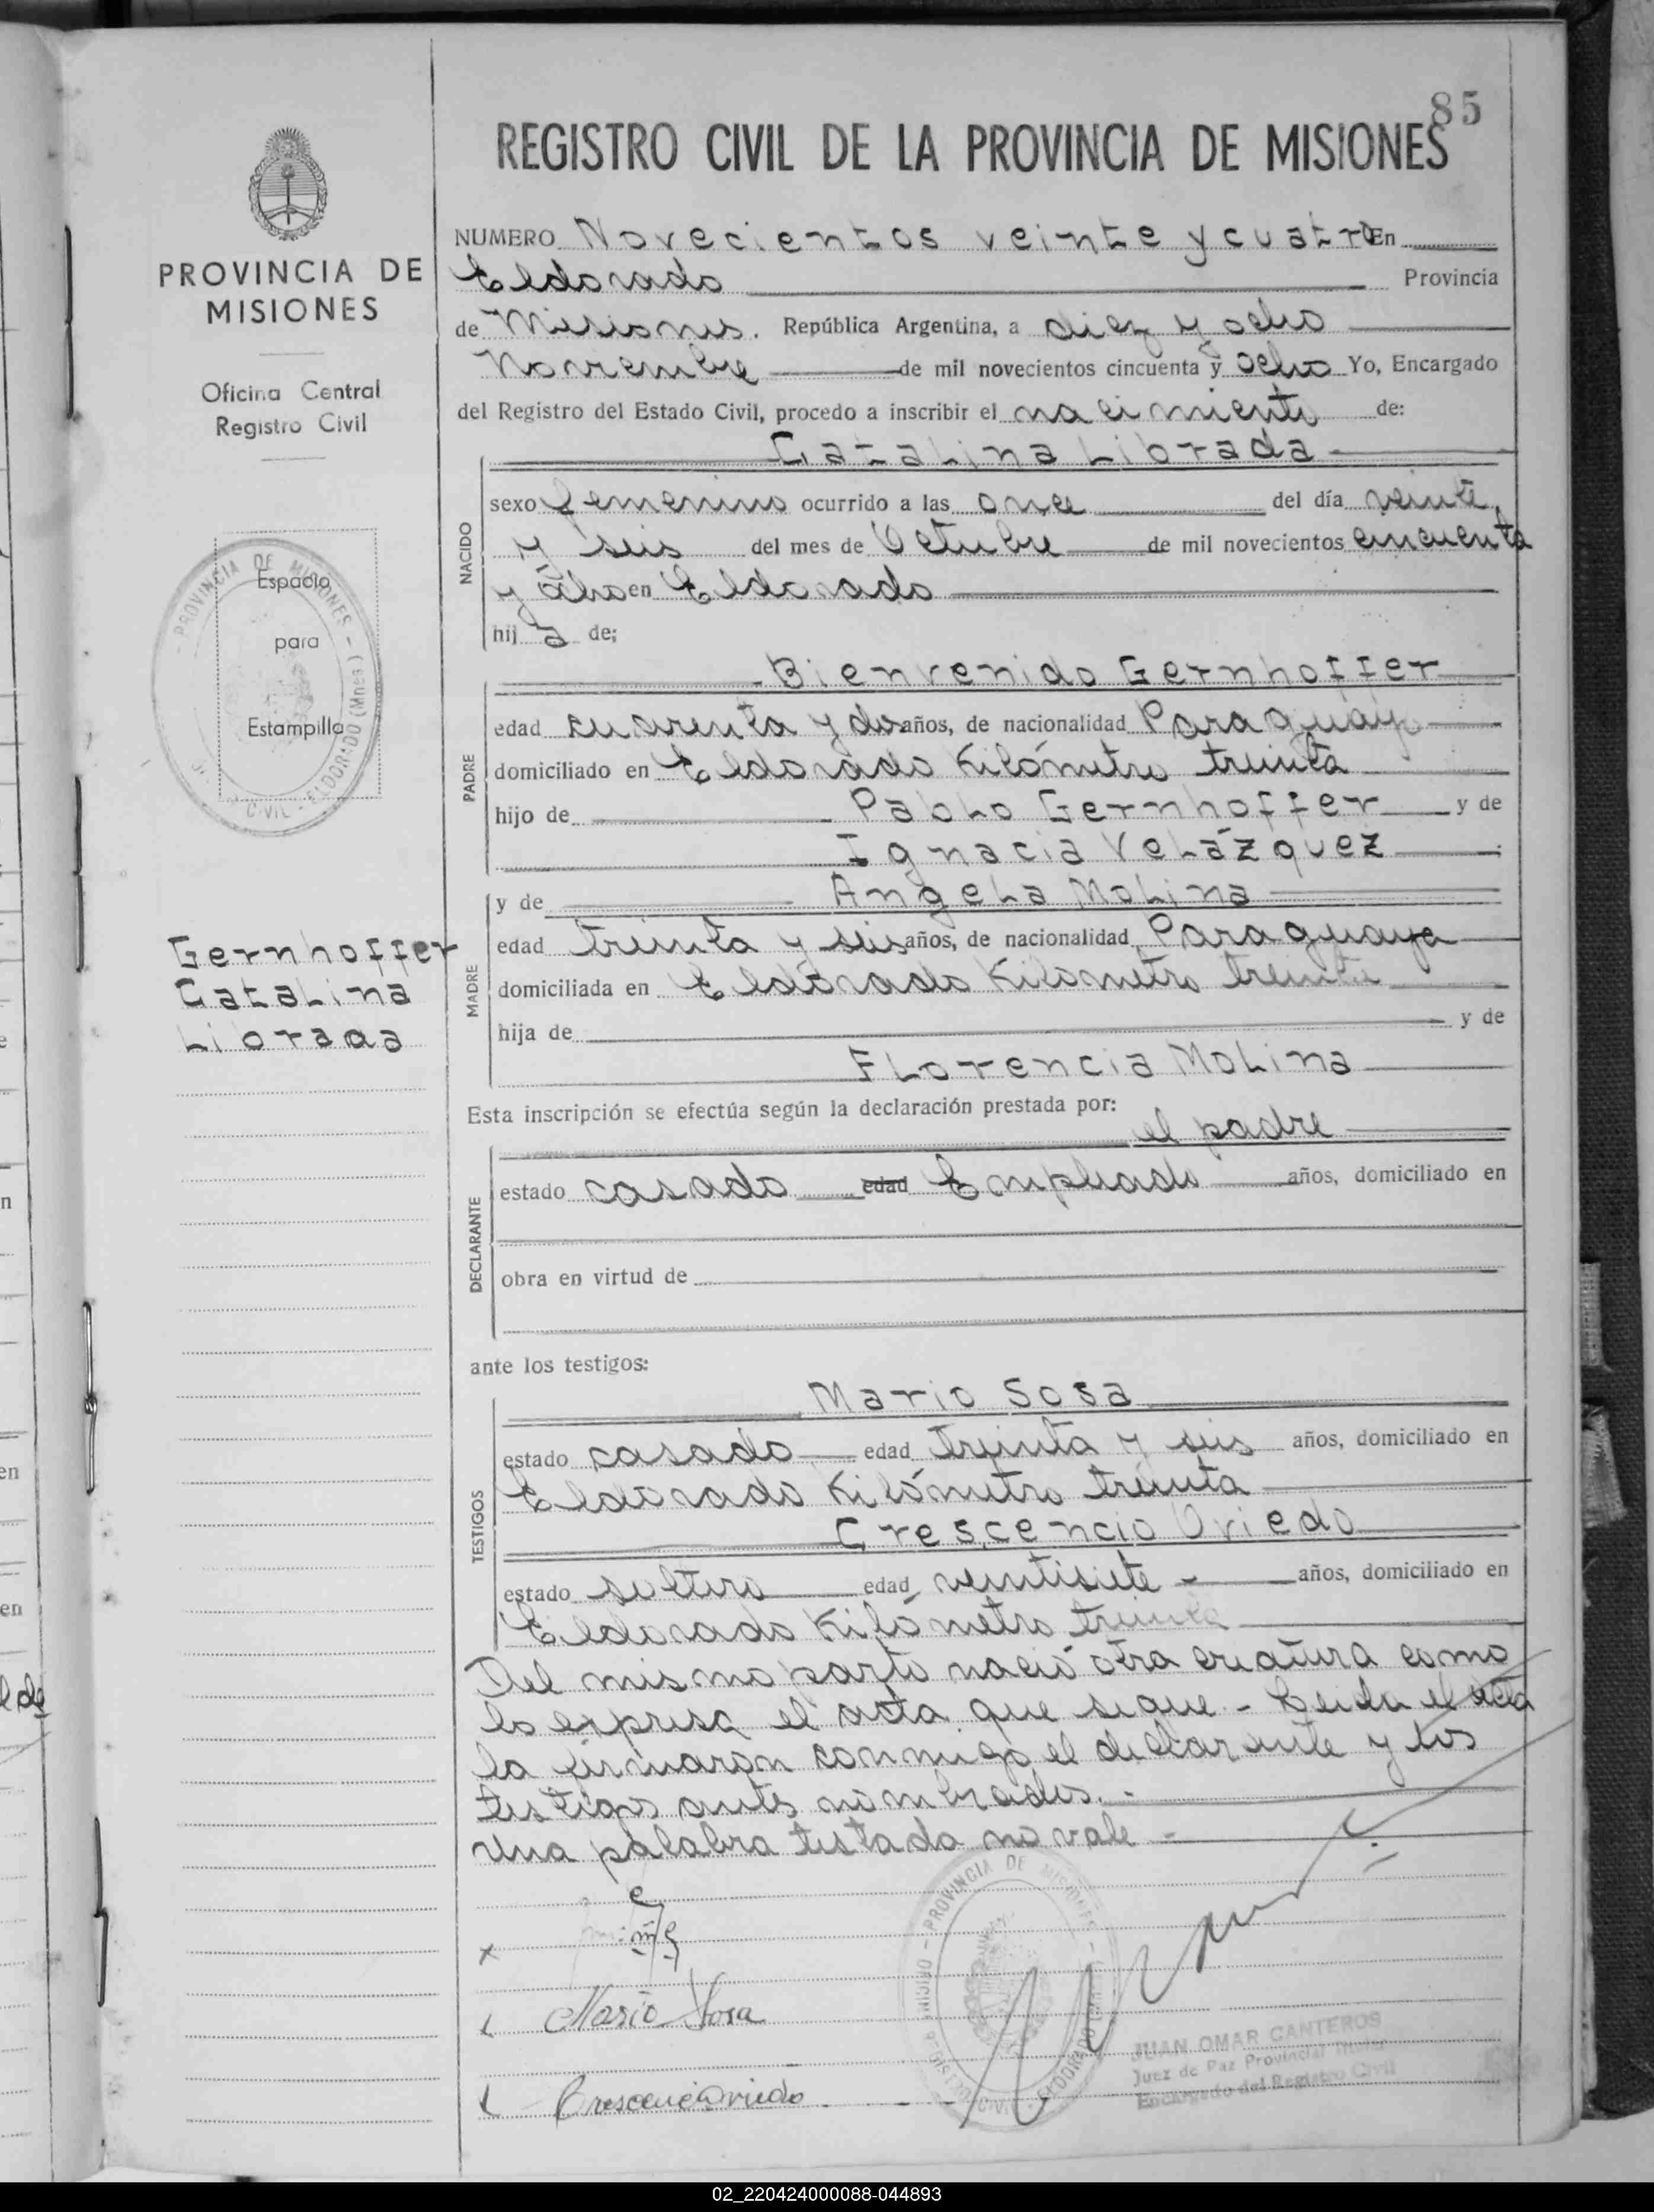 85
REGISTRO CIVIL DE LA PROVINCIA DE MISIONES
PROVINCIA DE
MISIONES
Oficina Central
Registro Civil
PROVINCIA DE MISIONES - ELDORADO (Mnes.)
CIVIL
Espacio
para
Estampilla
Gernhoffer
Catalina
Librada
NUMERO Novecientos veinte y cuatro En
Eldorado Provincia
de Misiones. República Argentina, a diez y ocho
Noviembre de mil novecientos cincuenta y ocho Yo, Encargado
del Registro del Estado Civil, procedo a inscribir el nacimiento de:
Catalina Librada
NACIDO
sexo femenino ocurrido a las once del día veinte
y seis del mes de Octubre de mil novecientos cincuenta
y ocho en Eldorado
hij a de;
Bienvenido Gernhoffer
PADRE
edad cuarenta y dos años, de nacionalidad Paraguayo
domiciliado en Eldorado Kilómetro treinta
hijo de Pablo Gernhoffer y de
Ignacia Velázquez
y de Angela Molina
MADRE
edad treinta y seis años, de nacionalidad Paraguaya
domiciliada en Eldorado Kilometro treinta
hija de y de
Florencia Molina
Esta inscripción se efectúa según la declaración prestada por:
el padre
DECLARANTE
estado casado edad Empleado años, domiciliado en
obra en virtud de
ante los testigos:
Mario Sosa
TESTIGOS
estado casado edad treinta y seis años, domiciliado en
Eldorado Kilómetro treinta
Crescencio Oviedo
estado soltero edad veintisiete - años, domiciliado en
Eldorado Kilómetro treinta
Del mismo parto nació otra criatura como
lo expresa el acta que sigue - Leida el acta
la firmaron conmigo el declarante y los
testigos antes nombrados. -
Una palabra testada no vale -
Mario Sosa
Crescencio Oviedo
PROVINCIA DE MISIONES
JUAN OMAR CANTEROS
Juez de Paz Provincial Titular
Encargado del Registro Civil
02_220424000088-044893